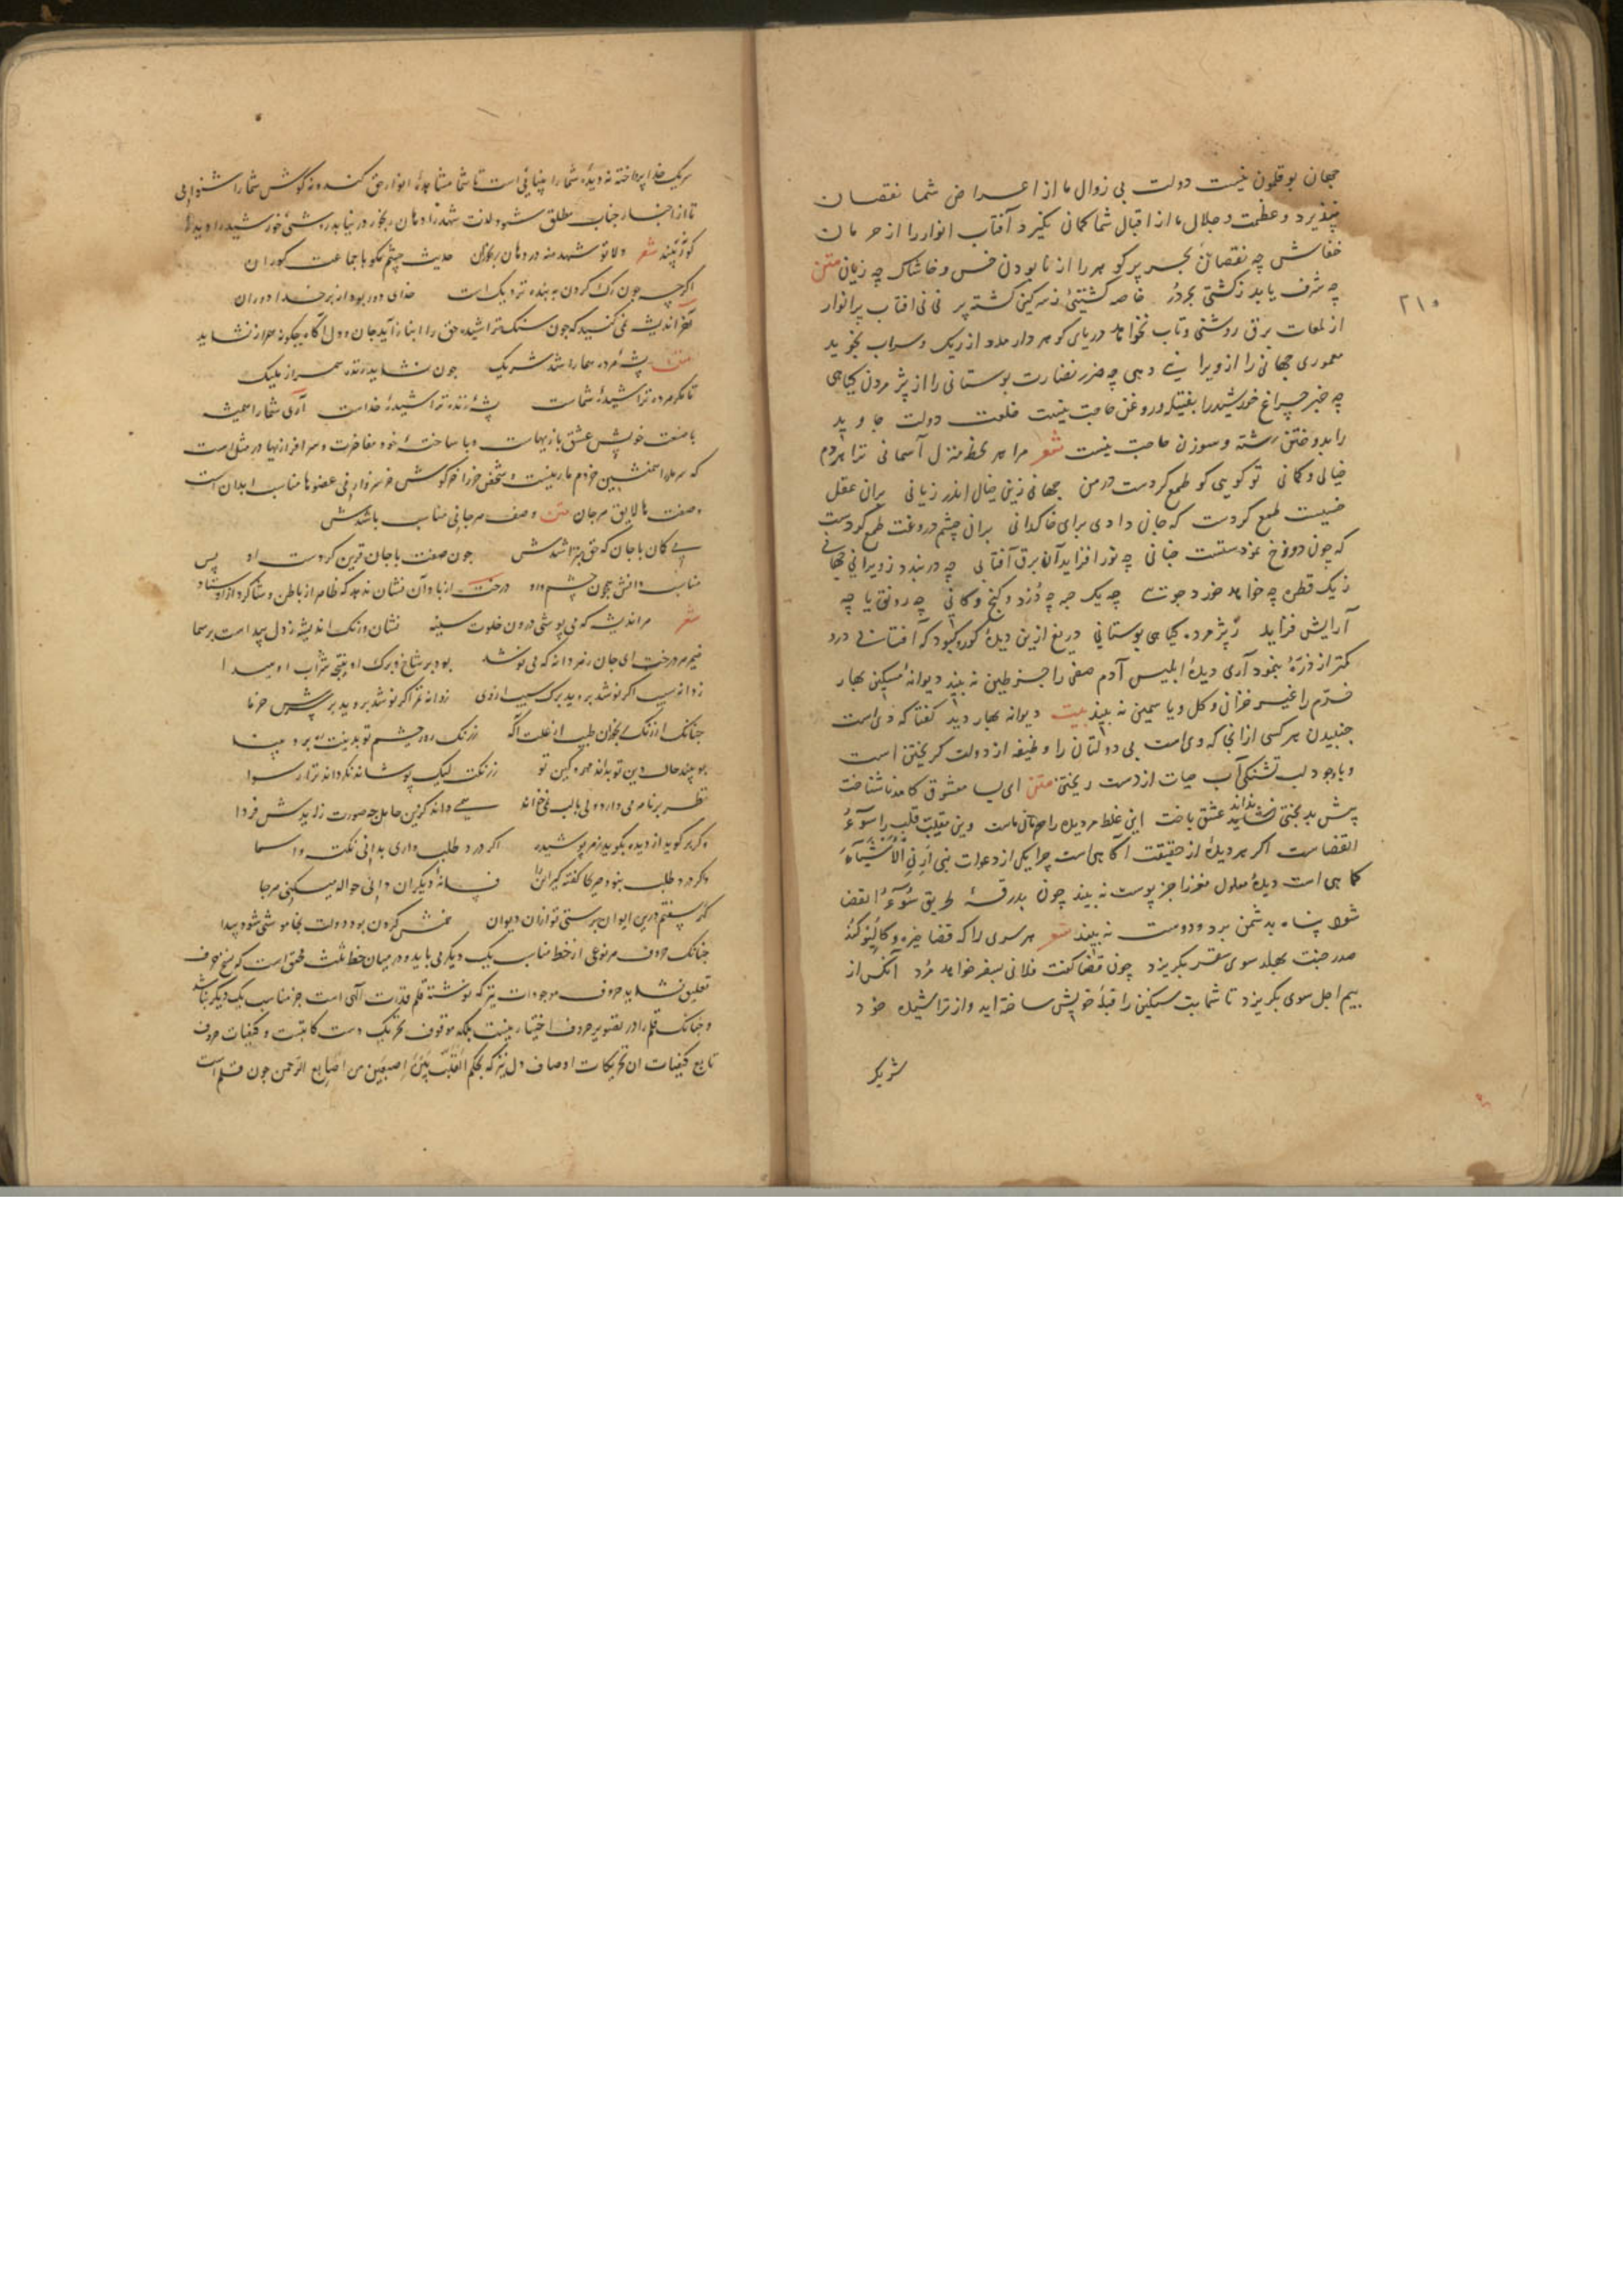 جهان بوقلمون نیست دولت بی زوال ما از اعراض شما نقصان
نپذیرد و عظمت و جلال ما از اقبال شما کمالی نگیرد آفتاب انوار را از حرمان
خفاش چه نقصان بحر پر گوهر را از نابودن خس و خاشاک چه زیان متن
چه شرف یابد ز کشتی بحر دُر خاصه کشتیٔ ز سرگین گشته پر آفتاب پر انوار
از لمعات برق روشنی و تاب نخواهد دریای گوهر دار مدد از ریگ و سراب نجوید
معموری جهانی را از ویرانی دهی چه ضرر نضارت بوستانی را از پژمردن گیاهی
چه خبر چراغ خورشید را بفتیله و روغن حاجت نیست خلعت دولت جاوید
را بدوختن رشته و سوزن حاجت نیست شعر مرا هر لحظه منزل آسمانی ترا هر دم
خیالی و گمانی تو گویی کو طمع کردست در من جهانی زین خیال اندر زیانی بران عقل
خسیست طمع کردست که جانی دادی برای خاکدانی بران چشم دروغت طمع کردست
که چون دوزخ نمودستت جنانی چه نور افزاید آن برق آفتابی چه در بندد ز ویرانی جهانی
ز یک قطره چه خواهد خورد جوئی چه یک حبه چه دزدد گنج و کانی چه رونق یا چه
آرایش فزاید ز پژمرده گیاهی بوستانی دریغ ازین دیدهٔ کور و کبود که آفتابی درو
کمتر از ذرهٔ بنمود آری دیدهٔ ابلیس آدم صفی را جز طین نه بیند دیوانهٔ مسکین بهار
خرّم را غیر خزانی و گل و یاسمین نه بیند بیت دیوانه بهار دید گفتا که دی است
جنبیدن هر کسی از آنجا که وی است بی دولتان را وظیفه از دولت گریختن است
و باوجود لب تشنگی آب حیات از دست ریختن متن ای بسا معشوق کامد ناشناخت
پیش بدبختی نداند عشق باخت این غلط مر دیده را حرمان ماست وین مقلب قلب را سوء
القضاست اگر هر دیدهٔ از حقیقت آگاهی است چرا یکی از دعوات نبی اَرِنی الاشیاء
کما هی است دیدهٔ معلول مغز را جز پوست نه بیند چون بدرقهٔ طریق سوء القضا
شود پناه به دشمن برد و دوست نه بیند شعر هر سری را که قضا خیره و کالیوه کند
صدر جنت بهلد سوی سقر بگریزد چون قضا گفت فلانی بسفر خواهد مرد آنکس از
بیم اجل سوی بگریزد تا شما بت سنگین را قبلهٔ خویش ساخته اید و از تراشیده خود
شریک
۲۱۰
شریک خدا پرداخته نه دیدهٔ شما را بینائی است تا شما مشاهدهٔ انوار حق کند و نه گوش شما را شنوایی
تا از اخبار جناب مطلق شنود لذت شهد را دهان رنجور در نیابد روشنیٔ خورشید را دیدهٔ
کور نبیند شعر دلا تو شهد منه در دهان رنجوران حدیث چشم مگو با جماعت کوران
اگرچه چون رگ گردن به بنده نزدیک است خدای دور بود از بر خدا دوران
آخر اندیشه نمی کنید که چون سنگ تراشیده حق را انباز آید جان و دل آگاه چگونه همراز نشاید
متن پشهٔ مرده هما را شد شریک چون نشاید زنده همراز ملیک
تا مگر مرده تراشیدهٔ شماست پشهٔ زنده تراشیدهٔ خداست آری شما را همیشه
با صنعت خویش عشق بازیهاست و با ساختهٔ خود مفاخرت و سرافرازیها در مثل است
صفت ها لایق مرجان متن وصف هر جانی مناسب باشدش
بی گمان با جان که حق بتراشدش چون صفت با جان قرین کردست او پس
مناسب دانش همچون چشم و رو درخت از باد آن نشان ندهد که ظاهر از باطن و شاگرد از استاد
شعر هر اندیشه که می پوشی درون خلوت سینه نشان و رنگ اندیشه ز دل پیداست بر سیما
ضمیر هر درخت ای جان ز هر دانه که می نوشد بود بر شاخ و برگ او نتیجهٔ شراب او پیدا
ز دانه سیب اگر نوشد بروید برگ سیب از وی ز دانه تمر اگر نوشد بروید بر سرش خرما
چنانکه از رنگ رنجوران طبیب از علت آگه ز رنگ روی چشم تو بدینت پی برد بینا
ببیند حال دین تو بداند مهر و کین تو ز رنگت لیک پوشاند نگرداند ترا رسوا
نظر بر نامه می دارد ولی بالب نمی خواند همی داند کزین حامل چه صورت زایدش فردا
وگر برگوید از دیده بگوید رمز پوشیده اگر درد طلب داری بدانی نکته و ایما
وگر درد طلب نبود صریحا گفته گیر این را فسانهٔ دیگران دانی حواله می کنی هر جا
چنانکه حروف هر نوعی از خط مناسب یک دیگر می باید و در میان خط ثلث محقق است که نسخ حروف
تعلیق نشاید حروف موجودات نیز که نوشته قلم قدرت الهی است جز مناسب یک دیگر نباشد
و چنانکه قلم را در تصویر حروف اختیار نیست بلکه موقوف تحریک دست کاتبست و کیفیات حروف
تابع کیفیات آن تحریکات اوصاف دل نیز که بحکم القلب بین اصبعین من اصابع الرحمن چون قلم است